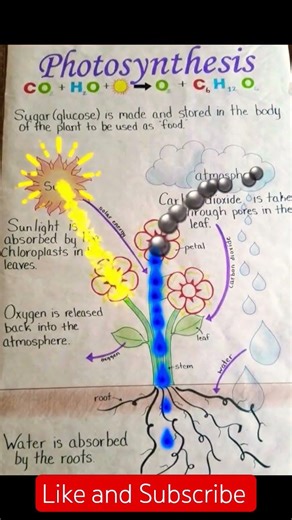 Photosynthesis
CO₂ + H₂O + → O₂ + C₆H₁₂O₆
Sugar (glucose) is made and stored in the body
of the plant to be used as "food."
atmosphe
Su
solar energy
Car dioxide is take
through pores in the
leaf.
Sunlight is
absorbed by
Chloroplasts in
leaves.
petal
carbon dioxide
Oxygen is released
back into the
atmosphere.
leaf
oxygen
water
stem
root
Water is absorbed
by the roots.
Like and Subscribe